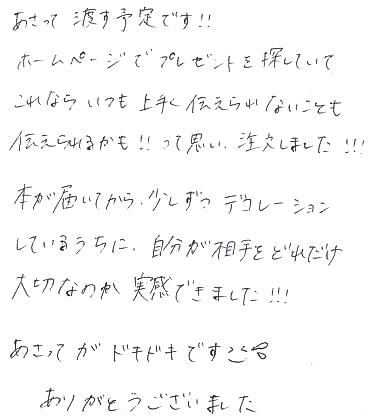 あさって 渡す予定です!!
ホームページでプレゼントを探していて
これなら いつも 上手く伝えられないことも
伝えられるかも!! って思い、注文しました!!!
本が届いてから、少しずつ デコレーション
しているうちに、自分が相手をどれだけ
大切なのか 実感できました!!!
あさって が ドキドキです
ありがとうございました